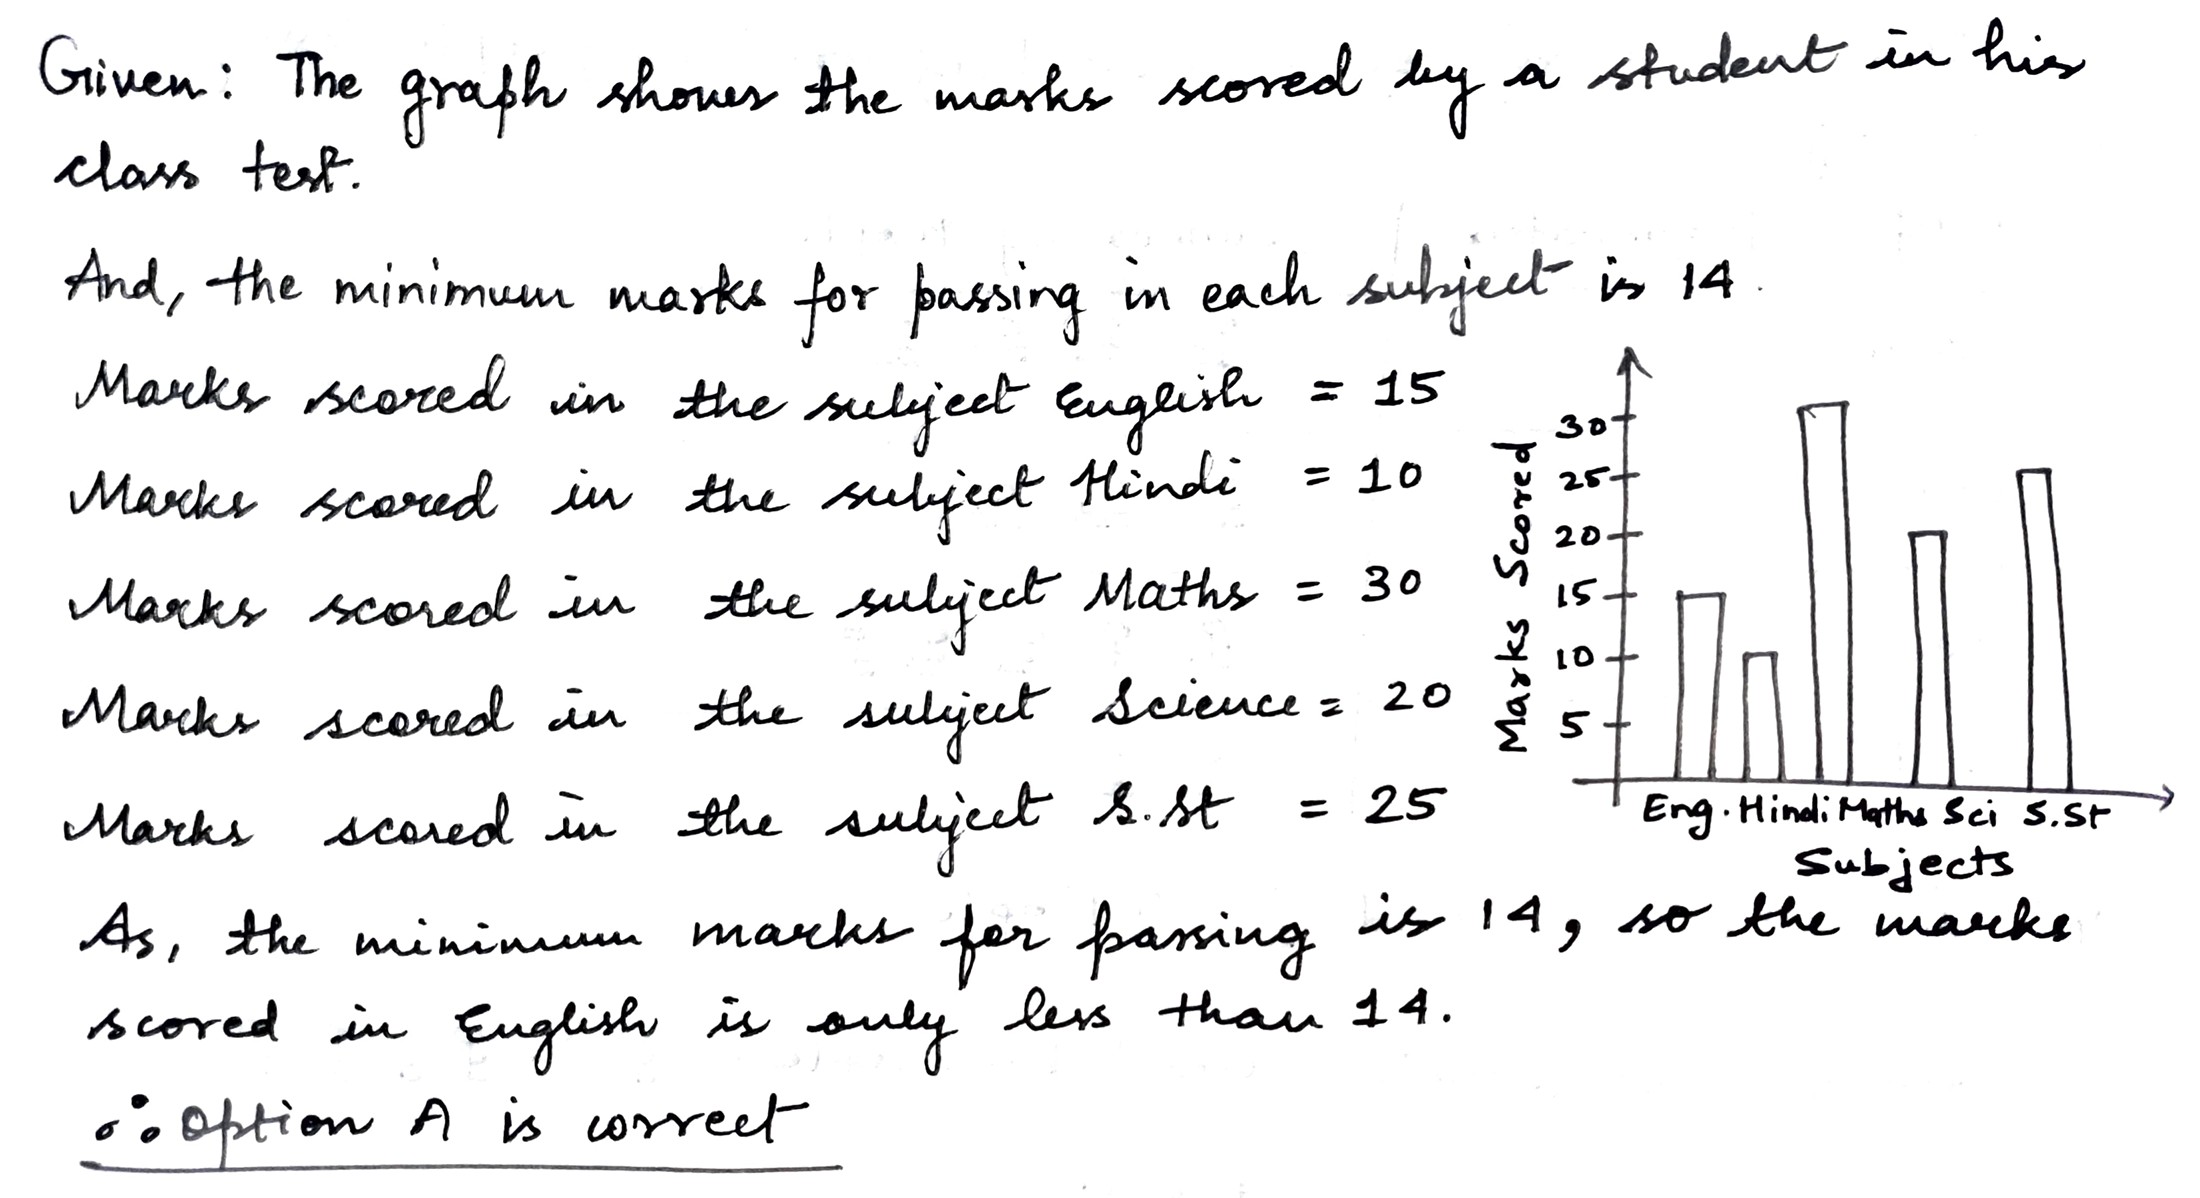 Given: The graph shows the marks scored by a student in his
class test.
And, the minimum marks for passing in each subject is 14.
Marks scored in the subject English = 15
Marks scored in the subject Hindi = 10
Marks scored in the subject Maths = 30
Marks scored in the subject Science = 20
Marks scored in the subject S.St = 25
Marks Scored
30
25
20
15
10
5
Eng. Hindi Maths Sci S.St
Subjects
As, the minimum marks for passing is 14, so the marks
scored in English is only less than 14.
∴ Option A is correct